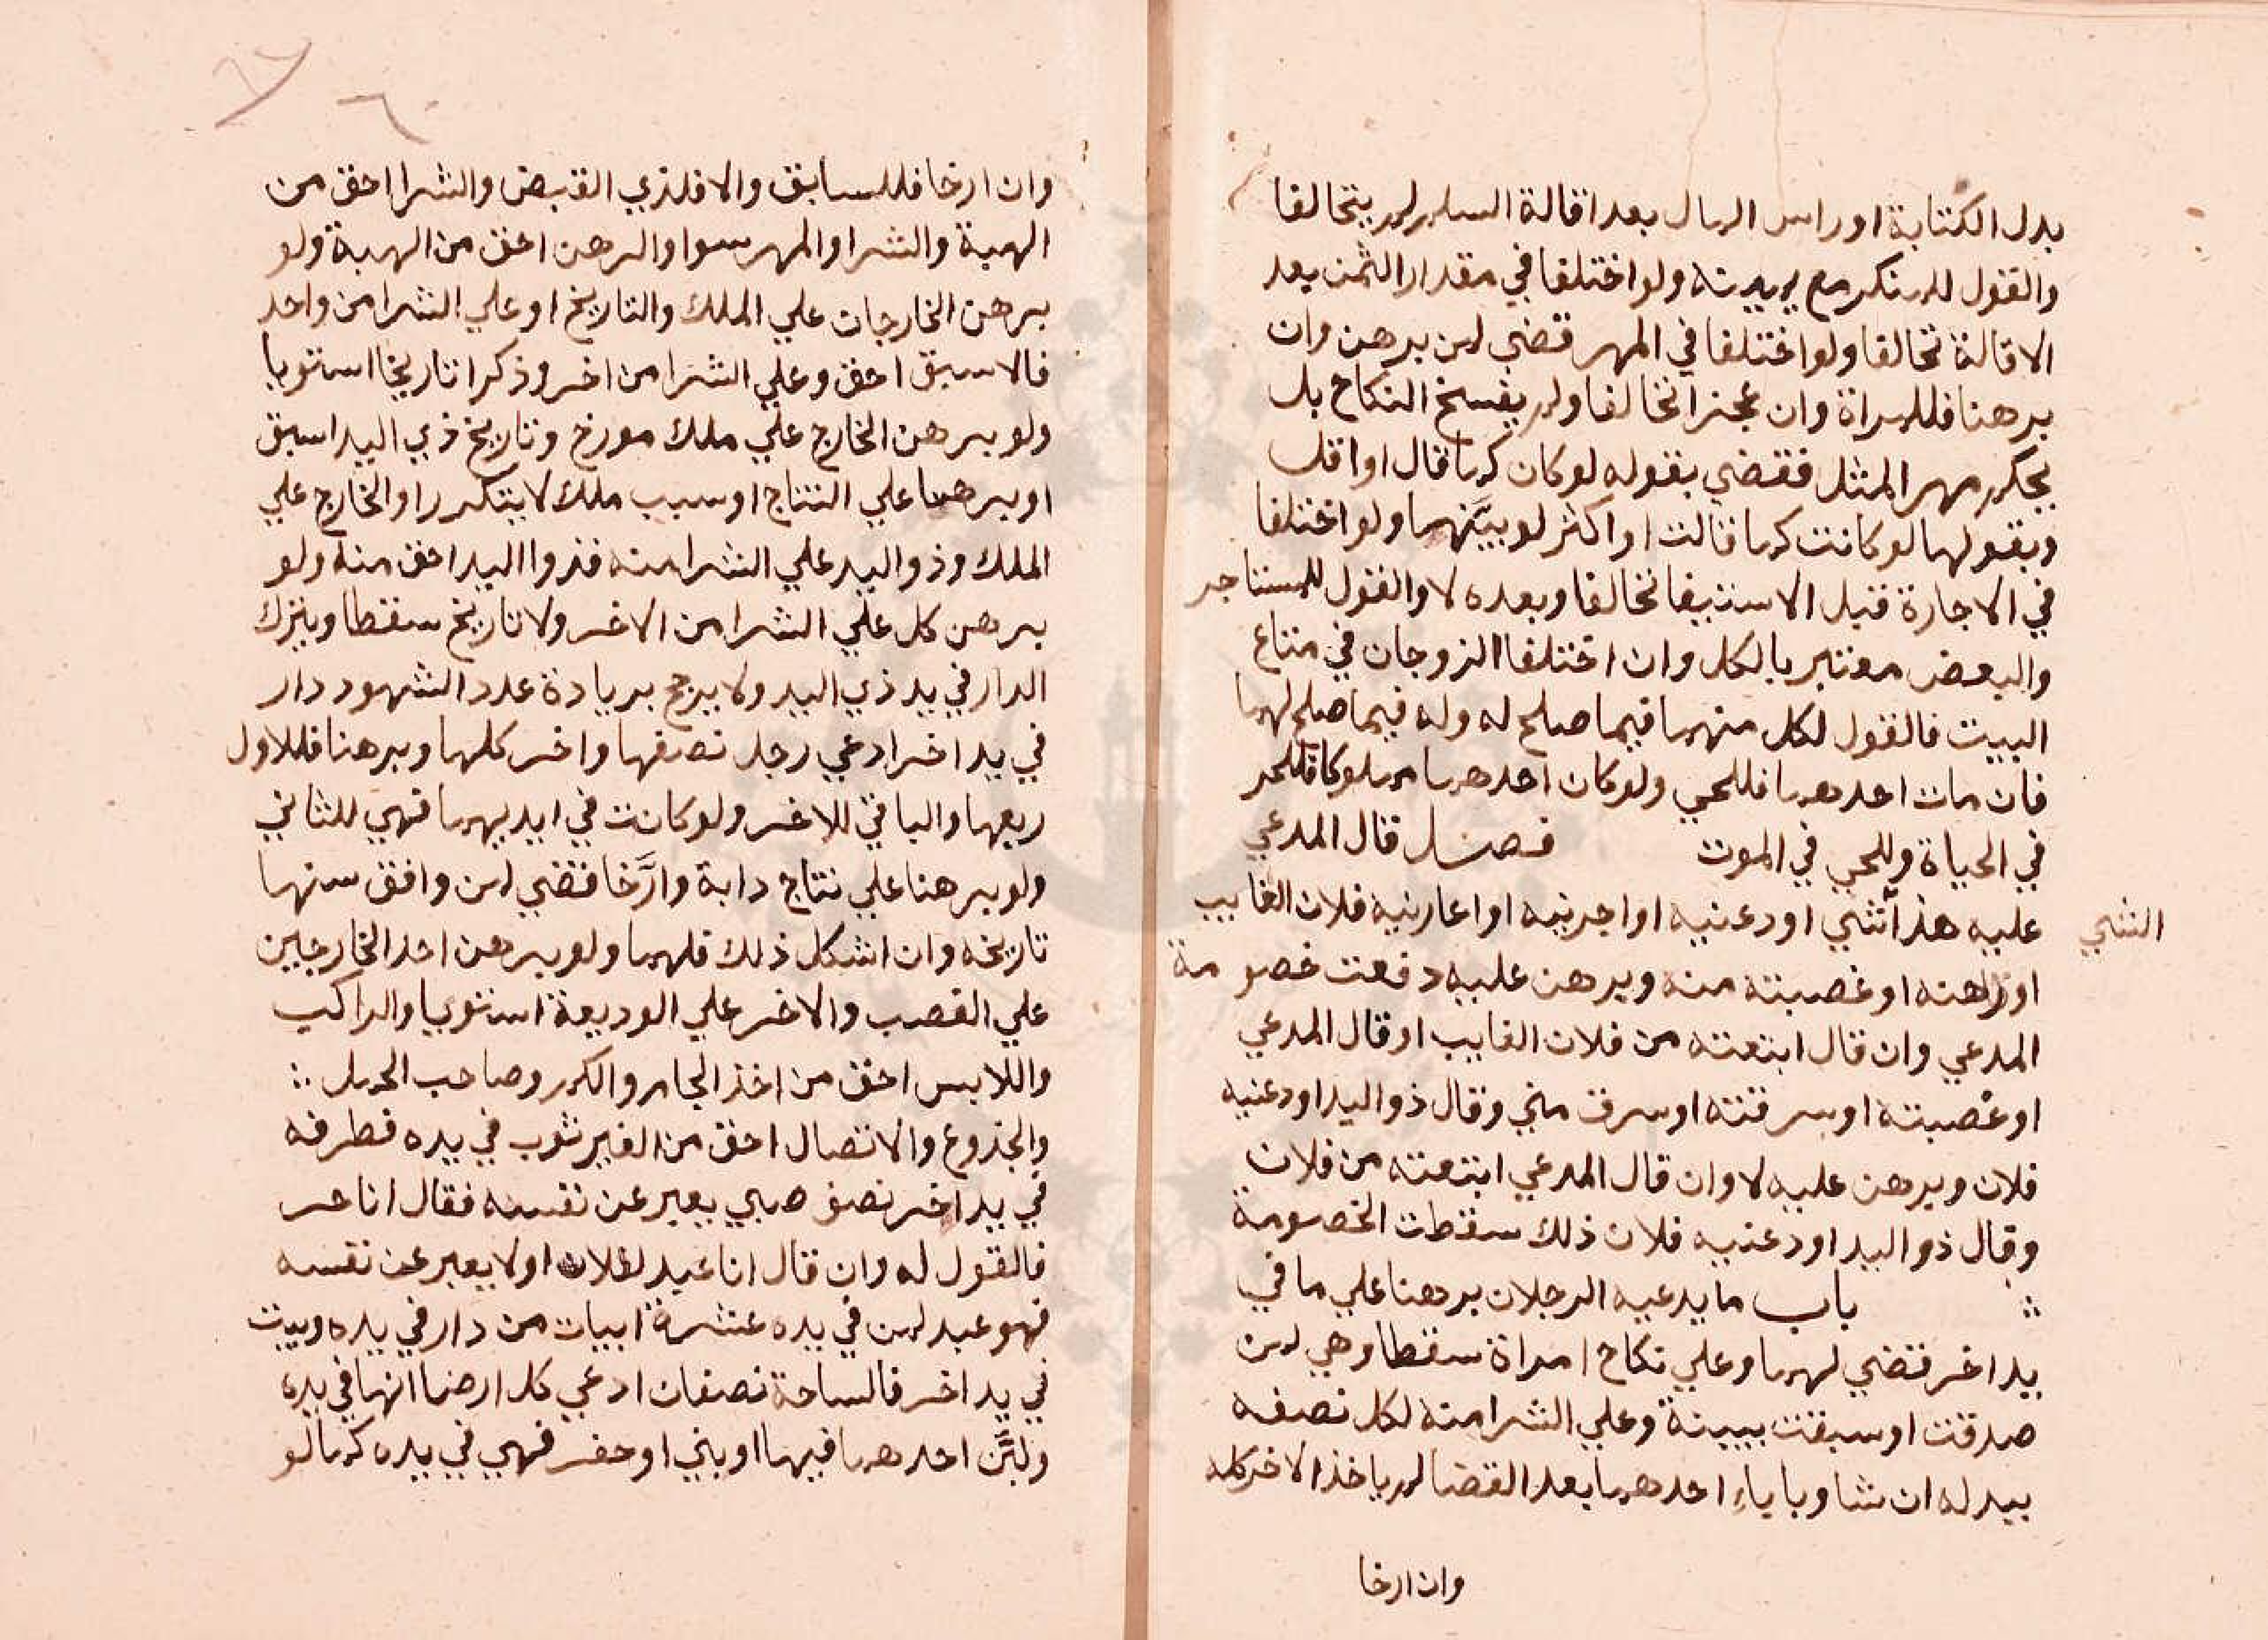 بدل الكتابة او راس المال بعد اقالة السلم لم يتحالفا
والقول للمنكر مع يمينه ولو اختلفا في مقدار الثمن بعد
الاقالة تحالفا ولو اختلفا في المهر قضي لمن برهن وان
برهنا فللمراة وان عجزا تحالفا ولم يفسخ النكاح بل
يحكم مهر المثل فقضي بقوله لو كان كما قال او اقل
وبقولها لو كانت كما قالت او اكثر لو بينهما ولو اختلفا
في الاجارة قبل الاستيفا تحالفا وبعده لا والقول للمستاجر
والبعض معتبر بالكل وان اختلفا الزوجان في متاع
البيت فالقول لكل منهما فيما صلح له وله فيما صلح لهما
فان مات احدهما فللحي ولو كان احدهما مملوكا فللحر
في الحياة وللحي في الموت فصل قال المدعي
عليه هذا الشي اودعنيه او اجرنيه او اعارنيه فلان الغايب
الشي
او رهنه او غصبته منه وبرهن عليه دفعت خصومة
المدعي وان قال ابتعته من فلان الغايب او قال المدعي
او غصبته او سرقته او سرق مني وقال ذو اليد اودعنيه
فلان وبرهن عليه لا وان قال المدعي ابتعته من فلان
وقال ذو اليد اودعنيه فلان ذلك سقطت الخصومة
باب ما يدعيه الرجلان برهنا علي ما في
يد اخر قضي لهما وعلي نكاح امراة سقطا وهي لمن
صدقت او سبقت ببينة وعلي الشرا منه لكل نصفه
ببدله ان شا وباباء احدهما بعد القضا لم ياخذ الاخر كله
وان ارخا
وان ارخا فللسابق والا فلذي القبض والشرا احق من
الهبة والشرا والمهر سوا والرهن احق من الهبة ولو
برهن الخارجان علي الملك والتاريخ او علي الشرا من واحد
فالاسبق احق وعلي الشرا من اخر وذكرا تاريخا استويا
ولو برهن الخارج علي ملك مورخ وتاريخ ذي اليد اسبق
او برهنا علي النتاج او سبب ملك لا يتكرر او الخارج علي
الملك وذو اليد علي الشرا منه فذوا اليد احق منه ولو
برهن كل علي الشرا من الاخر ولا تاريخ سقطا ويترك
الدار في يد ذي اليد ولا يرجح بزيادة عدد الشهود دار
في يد اخر ادعي رجل نصفها واخر كلها وبرهنا فللاول
ربعها والباقي للاخر ولو كانت في ايديهما فهي للثاني
ولو برهنا علي نتاج دابة وارَّخا قضي لمن وافق سنها
تاريخه وان اشكل ذلك فلهما ولو برهن احد الخارجين
علي الغصب والاخر علي الوديعة استويا والراكب
واللابس احق من اخذ الجام والكم وصاحب الحمل
والجذوع والاتصال احق من الغير ثوب في يده فطرفه
في يد اخر نصف صبي يعبر عن نفسه فقال انا حر
فالقول له وان قال انا عبد لفلان او لا يعبر عن نفسه
فهو عبد لمن في يده عشرة ابيات من دار في يده وبيت
في يد اخر فالساحة نصفان ادعي كل ارضا انها في يده
ولبَّن احدهما فيها او بني او حفر فهي في يده كما لو